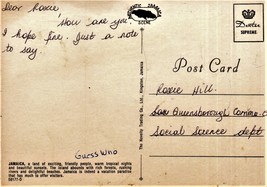 Dear Roxie
How are you.
I hope fine. Just a note
to say.
Guess Who
JAMAICA, a land of exciting, friendly people, warm tropical nights
and beautiful sunsets. The island abounds with rich forests, rushing
rivers and delightful beaches. Jamaica is indeed a vacation paradise
that has much to offer visitors.
The Novelty Trading Co., Ltd., Kingston, Jamaica
AUTHENTIC JAMAICA
SCENE
Dexter
SUPREME
Post Card
Roxie Hill.
Social Science dept